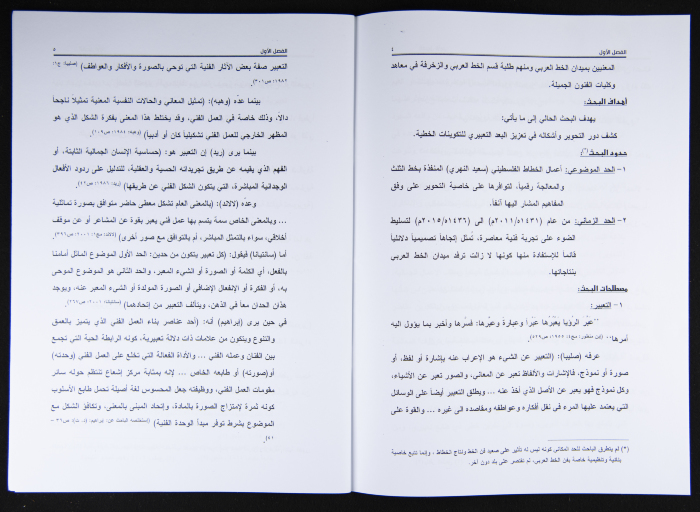 الفصل الأول
٤
المعنيين بميدان الخط العربي ومنهم طلبة قسم الخط العربي والزخرفة في معاهد
وكليات الفنون الجميلة.
أهداف البحث:
يهدف البحث الحالي إلى ما يأتي:
كشف دور التحوير وأشكاله في تعزيز البعد التعبيري للتكوينات الخطية.
حدود البحث(*):
١- الحد الموضوعي: أعمال الخطاط الفلسطيني (سعيد النهري) المنفذة بخط الثلث
والمعالجة رقمياً، لتوافرها على خاصية التحوير على وفق
المفاهيم المشار اليها آنفاً.
٢- الحد الزماني: من عام (١٤٣١ه/٢٠١١م) الى (١٤٣٦ه/٢٠١٥م) لتسليط
الضوء على تجربة فنية معاصرة، تُمثل إتجاهاً تصميمياً دلالياً
قائما للإستفادة منها كونها لا زالت ترفد ميدان الخط العربي
بنتاجاتها.
مصطلحات البحث:
١- التعبير:
عبّر الرُؤيا يعبّرها عَبْراً وعبارةً وعبّرها: فسّرها وأخبر بما يؤول اليه
أمرها.. (ابن منظور، مج٤، ص٥٢٩).
عرفه (صليبا): (التعبير عن الشيء هو الاعراب عنه بإشارة أو لفظ، أو
صورة أو نموذج، فالإشارات والألفاظ تعبر عن المعاني، والصور تعبر عن الأشياء،
وكل نموذج فهو يعبر عن الأصل الذي أخذ عنه ... ويطلق التعبير أيضاً على الوسائل
التي يعتمد عليها المرء في نقل أفكاره وعواطفه ومقاصده الى غيره ... والقوة على
(*) لم يتطرق الباحث للحد المكاني كونه ليس له تأثير على صعيد فن الخط ونتاج الخطاط ، وإنما تتبع خاصية
بتقنية وتنظيمية خاصة بفن الخط العربي، لم تقتصر على بلد دون آخر.
الفصل الأول
٥
التعبير صفة بعض الآثار الفنية التي توحي بالصورة والأفكار والعواطف) (صليبا، ج١،
١٩٨٢، ص٣٠١).
بينما عدّه (وهبه): (تمثيل المعاني والحالات النفسية المعنية تمثيلاً ناجحاً
دالا، وذلك خاصة في العمل الفني، وقد يختلط هذا المعنى بفكرة الشكل الذي هو
المظهر الخارجي للعمل الفني تشكيلياً كان أو أدبياً) (وهبة، ص١٠٩).
بينما يرى (ريد) إن التعبير هو: (حساسية الإنسان الجمالية الثابتة، أو
الفهم الذي يقيمه عن طريق تجريداته الحسية والعقلية، للتدليل على ردود الأفعال
الوجدانية المباشرة، التي يتكون الشكل الفني عن طريقها) (ريد، ١٩٨٦، ص٤٢).
وعدّه (لالاند): (بالمعنى العام تشكل معطى حاضر متوافق بصورة تماثلية
... وبالمعنى الخاص سمة يتسم بها عمل فني يعبر بقوة عن المشاعر أو عن موقف
أخلاقي، سواء بالتمثل المباشر، أم بالتوافق مع صور أخرى) (لالاند، مج١، ٢٠٠١، ص٣٩٦).
أما (سانتيانا) فيقول: (كل تعبير يتكون من حدين: الحد الأول الموضوع الماثل أمامنا
بالفعل، أي الكلمة أو الصورة أو الشيء المعبر، والحد الثاني هو الموضوع الموحى
به، أو الفكرة أو الإنفعال الإضافي أو الصورة المولدة أو الشيء المعبر عنه، ويوجد
هذان الحدان معاً في الذهن، ويتألف التعبير من إتحادهما) (سانتيانا، ٢٠٠١).
في حين يرى (إبراهيم) أنه: (أحد عناصر بناء العمل الفني الذي يتميز بالعمق
والتنوع ويتكون من علامات ذات دلالة تعبيرية، كونه الرابطة الحية التي تجمع
بين الفنان وعمله الفني ... والأداة الفعالة التي تخلع على العمل الفني (وحدته)
أو(صورته) أو طابعه الخاص ... لإنه بمثابة مركز إشعاع تنتظم حوله سائر
مقومات العمل الفني، ووظيفته جعل المحسوس لغة أصيلة تحمل طابع الأسلوب
كونه ثمرة لإمتزاج الصورة بالمادة، وإتحاد المبنى بالمعنى، وتكافؤ الشكل مع
الموضوع بشرط توفر مبدأ الوحدة الفنية) (إستخلصه الباحث عن: إبراهيم،
٤١).